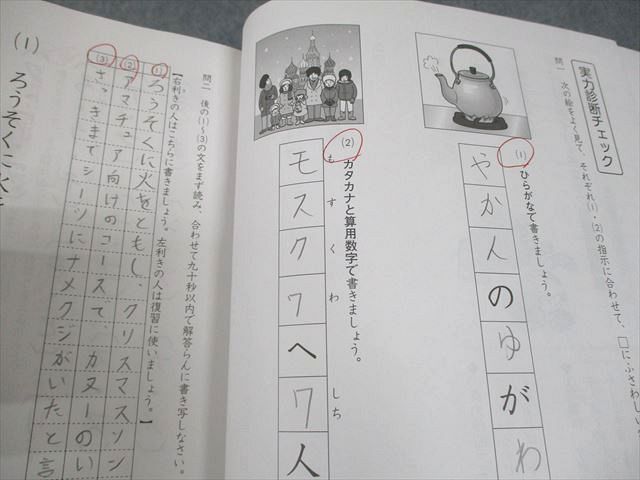 実力診断チェック
問一 次の絵をよく見て、それぞれ⑴・⑵の指示に合わせて、□にふさわしい
⑴ ひらがなで書きましょう。
やかんのゆがわ
⑵ カタカナと算用数字で書きましょう。
もすくわ しち
モスクワへ7人
問二 後の⑴〜⑶の文をまず読み、合わせて九十秒以内で解答らんに書き写しなさい。
【右利きの人はこちらに書きましょう。左利きの人は復習に使いましょう。】
① ろうそくに火をともし、クリスマスソン
② アマチュア向けのコースで、カヌーのい
③ さっきまでシーツにナメクジがいたと言
(1) ろうそくに火を